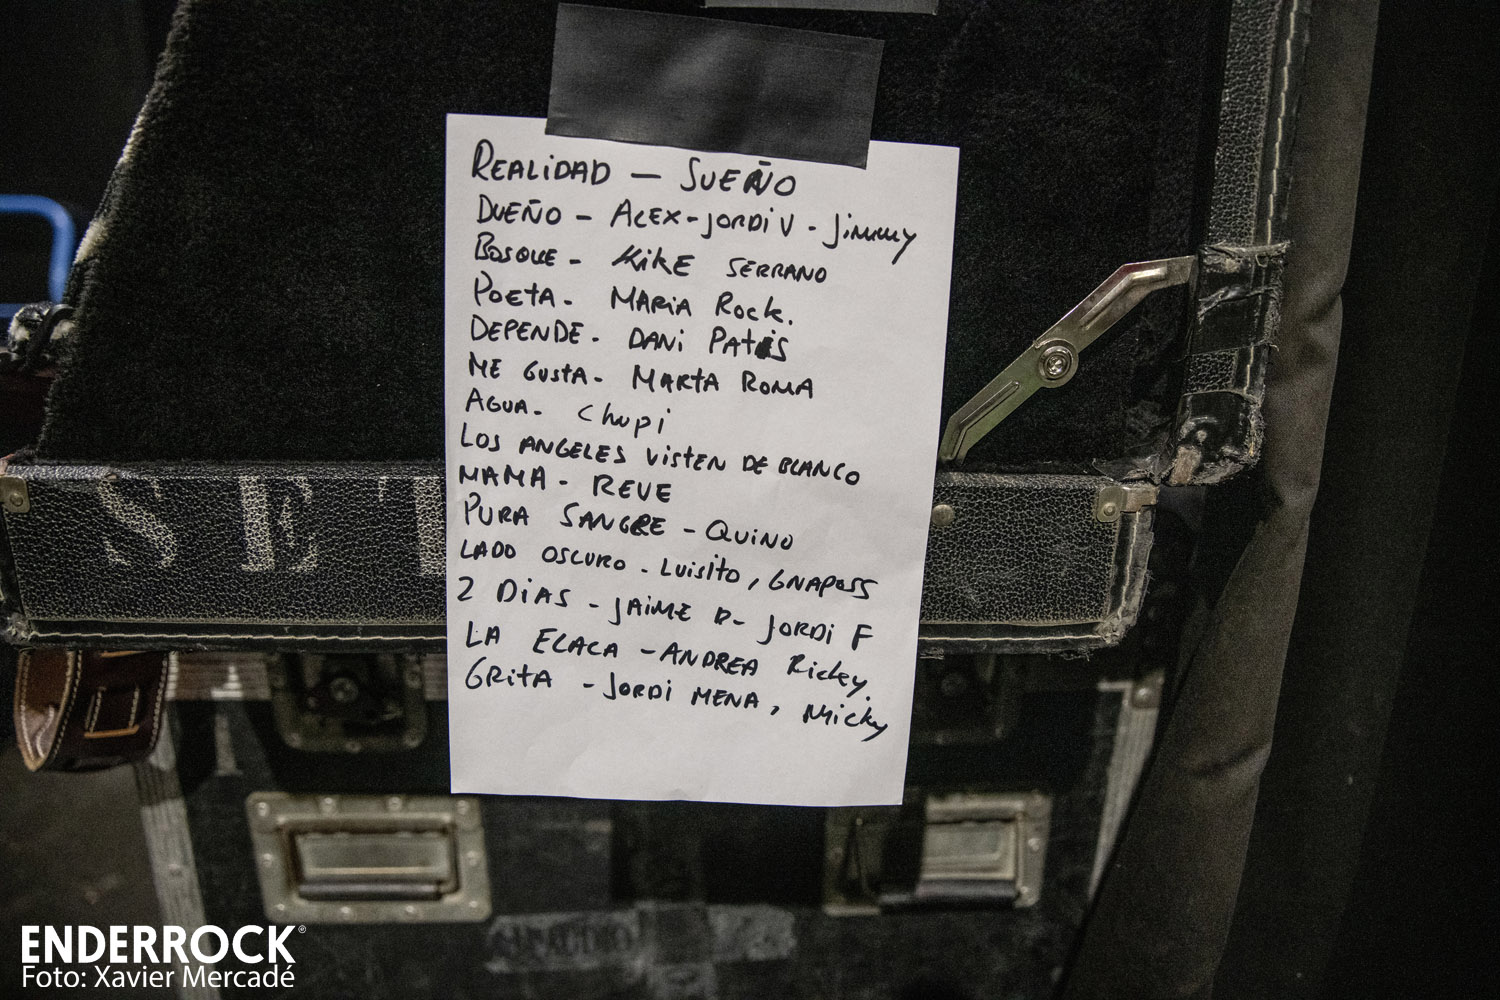 REALIDAD — SUEÑO
DUEÑO - ALEX - JORDI V - JIMMY
BOSQUE - KIKE SERRANO
POETA - MARIA ROCK.
DEPENDE - DANI PATIS
ME GUSTA - MARTA ROMA
AGUA - Chupi
LOS ANGELES VISTEN DE BLANCO
MAMA - REVE
PURA SANGRE - QUINO
LADO OSCURO - LUISITO,
2 DIAS - JAIME D - JORDI F
LA FLACA - ANDREA Ricky.
GRITA - JORDI MENA, Micky
SET
ENDERROCK®
Foto: Xavier Mercadé